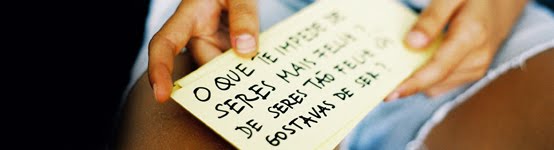 O QUE TE IMPEDE DE
SERES MAIS FELIZ?
DE SERES TÃO FELIZ QT
GOSTAVAS DE SER?